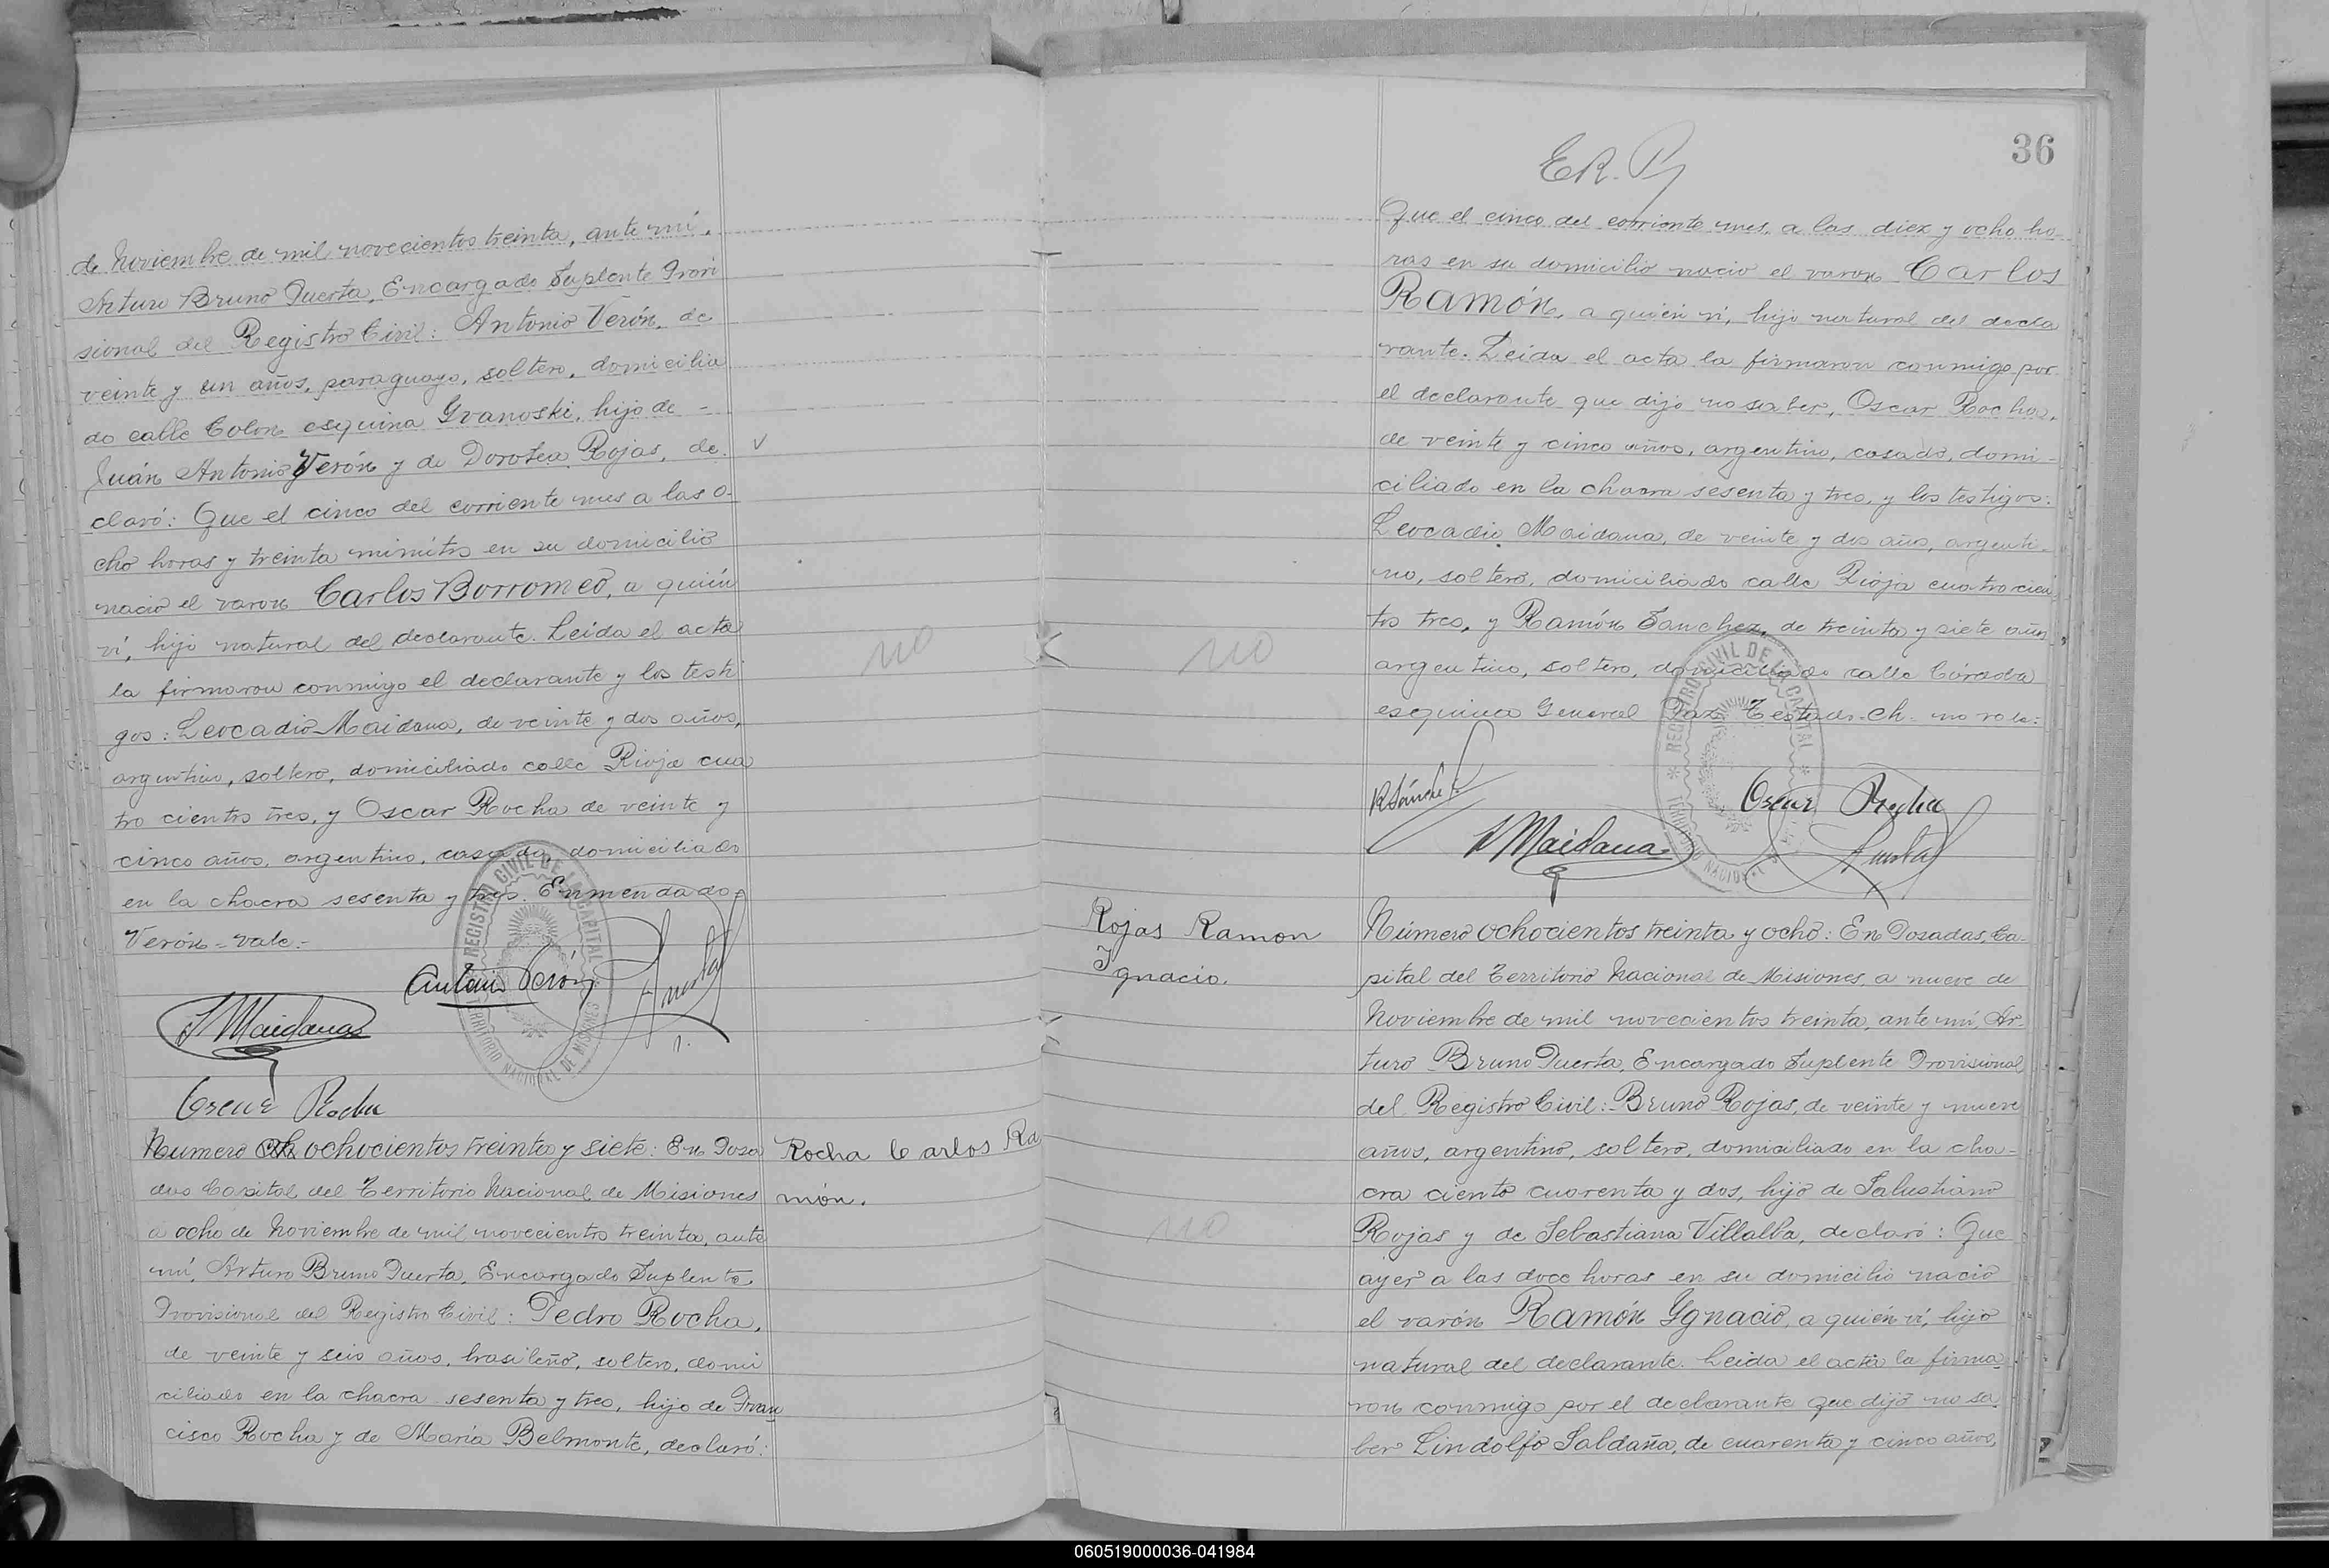 de Noviembre de mil novecientos treinta, ante mí,
Arturo Bruno Puerta, Encargado Suplente Provi
sional del Registro Civil: Antonio Verón, de
veinte y un años, paraguayo, soltero, domicilia
do calle Colon esquina Yvanoski, hijo de -
Juán Antonio Verón y de Dorotea Rojas, de
claró: Que el cinco del corriente mes a las o-
cho horas y treinta minutos en su domicilio
nació el varon Carlos Borromeo, a quién
ví, hijo natural del declarante. Leida el acta
la firmaron conmigo el declarante y los testi
gos: Leocadio Maidana, de veinte y dos años,
argentino, soltero, domiciliado calle Rioja cua
tro cientos tres, y Oscar Rocha de veinte y
cinco años, argentino, casado, domiciliado
en la chacra sesenta y tres. Enmendado
Verón - vale.-
no
REGISTRO CIVIL DE LA CAPITAL
TERRITORIO NACIONAL DE MISIONES
Antonio Verón
L Maidana
Oscar Rocha
Rocha Carlos Ra
món.
Numero och ochocientos treinta y siete: En Posa
das Capital del Territorio Nacional de Misiones
a ocho de Noviembre de mil novecientos treinta, ante
mí, Arturo Bruno Puerta, Encargado Suplente
Provisional del Registro Civil: Pedro Rocha,
de veinte y seis años, brasileño, soltero, domi
ciliado en la chacra sesenta y tres, hijo de Fran
cisco Rocha y de María Belmonte, declaró:
36
Que el cinco del corriente mes, a las diez y ocho ho
ras en su domicilio nació el varon Carlos
Ramón, a quién ví, hijo natural del decla
rante. Leida el acta la firmaron conmigo por
el declarante que dijo no saber, Oscar Rocha,
de veinte y cinco años, argentino, casado, domi-
ciliado en la chacra sesenta y tres, y los testigos:
Leocadio Maidana, de veinte y dos años, argenti-
no, soltero, domiciliado calle Rioja cuatrocien
tos tres, y Ramón Sanchez, de treinta y siete años
argentino, soltero, domiciliado calle Córdoba
esquina General Paz. Testado - Ch - no vale:
no
REGISTRO CIVIL DE LA CAPITAL
TERRITORIO NACIONAL
R Sánchez
Oscar Rocha
L Maidana
Rojas Ramon
Ignacio.
no
Número ochocientos treinta y ocho: En Posadas, Ca-
pital del Territorio Nacional de Misiones, a nueve de
Noviembre de mil novecientos treinta, ante mí, Ar-
turo Bruno Puerta, Encargado Suplente Provisional
del Registro Civil: Bruno Rojas, de veinte y nueve
años, argentino, soltero, domiciliado en la cha-
cra ciento cuarenta y dos, hijo de Salustiano
Rojas y de Sebastiana Villalba, declaró: Que
ayer a las doce horas en su domicilio nació
el varón Ramón Ygnacio, a quién ví, hijo
natural del declarante. Leida el acta la firma
ron conmigo por el declarante que dijo no sa
ber Lindolfo Saldaña, de cuarenta y cinco años,
060519000036-041984